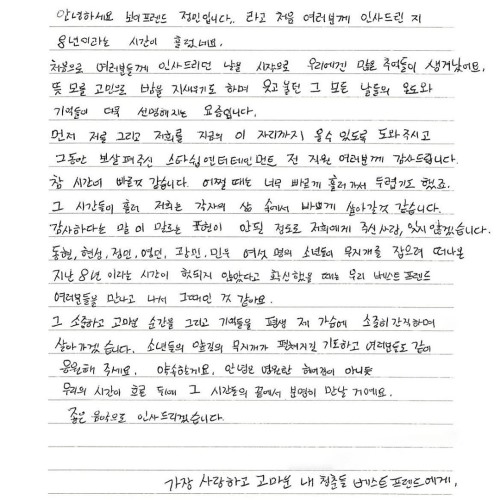 안녕하세요 보이프렌드 정민입니다. 라고 처음 여러분께 인사드린 지
8년이라는 시간이 흘렀네요.
처음으로 여러분들께 인사드리던 날을 시작으로 우리에겐 많은 추억들이 생겨났어요.
뜻 모를 고민으로 밤을 지새우기도 하며 웃고 울던 그 모든 날들의 온도와
기억들이 더욱 선명해지는 요즘입니다.
먼저 저를 그리고 저희를 지금의 이 자리까지 올 수 있도록 도와주시고
그동안 보살펴주신 스타쉽엔터테인먼트 전 직원 여러분께 감사드립니다.
참 시간이 빠른것 같습니다. 어쩔 때는 너무 빠르게 흘러가서 두렵기도 했죠.
그 시간들이 흘러 저희는 각자의 삶 속에서 바쁘게 살아갈것 같습니다.
감사하다는 말이 모든 표현이 안될 정도로 저희에게 주신 사랑, 잊지 않겠습니다.
동현, 현성, 정민, 영민, 광민, 민우 여섯 명의 소년들이 무지개를 잡으려 떠나온
지난 8년 이라는 시간이 헛되지 않았다고 확신했을 때는 우리 베스트프렌드
여러분들을 만나고 나서 그때인 것 같아요.
그 소중하고 고마운 순간들 그리고 기억들을 평생 제 가슴에 소중히 간직하며
살아가겠습니다. 소년들의 앞길의 무지개가 펼쳐지길 기도하고 여러분들도 같이
응원해 주세요. 약속할게요. 안녕은 영원한 헤어짐이 아니듯
우리의 시간이 흐른 뒤에 그 시간들의 끝에서 분명히 만날 거에요.
좋은 음악으로 인사드리겠습니다.
가장 사랑하고 고마운 내 청춘들 베스트프렌드에게.